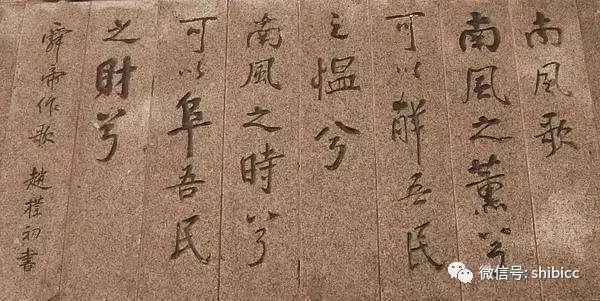 南风歌
南風之薰兮
可以解吾民
之愠兮
南風之時兮
可以阜吾民
之财兮
舜帝作歌 趙樸初書
微信号: shibicc